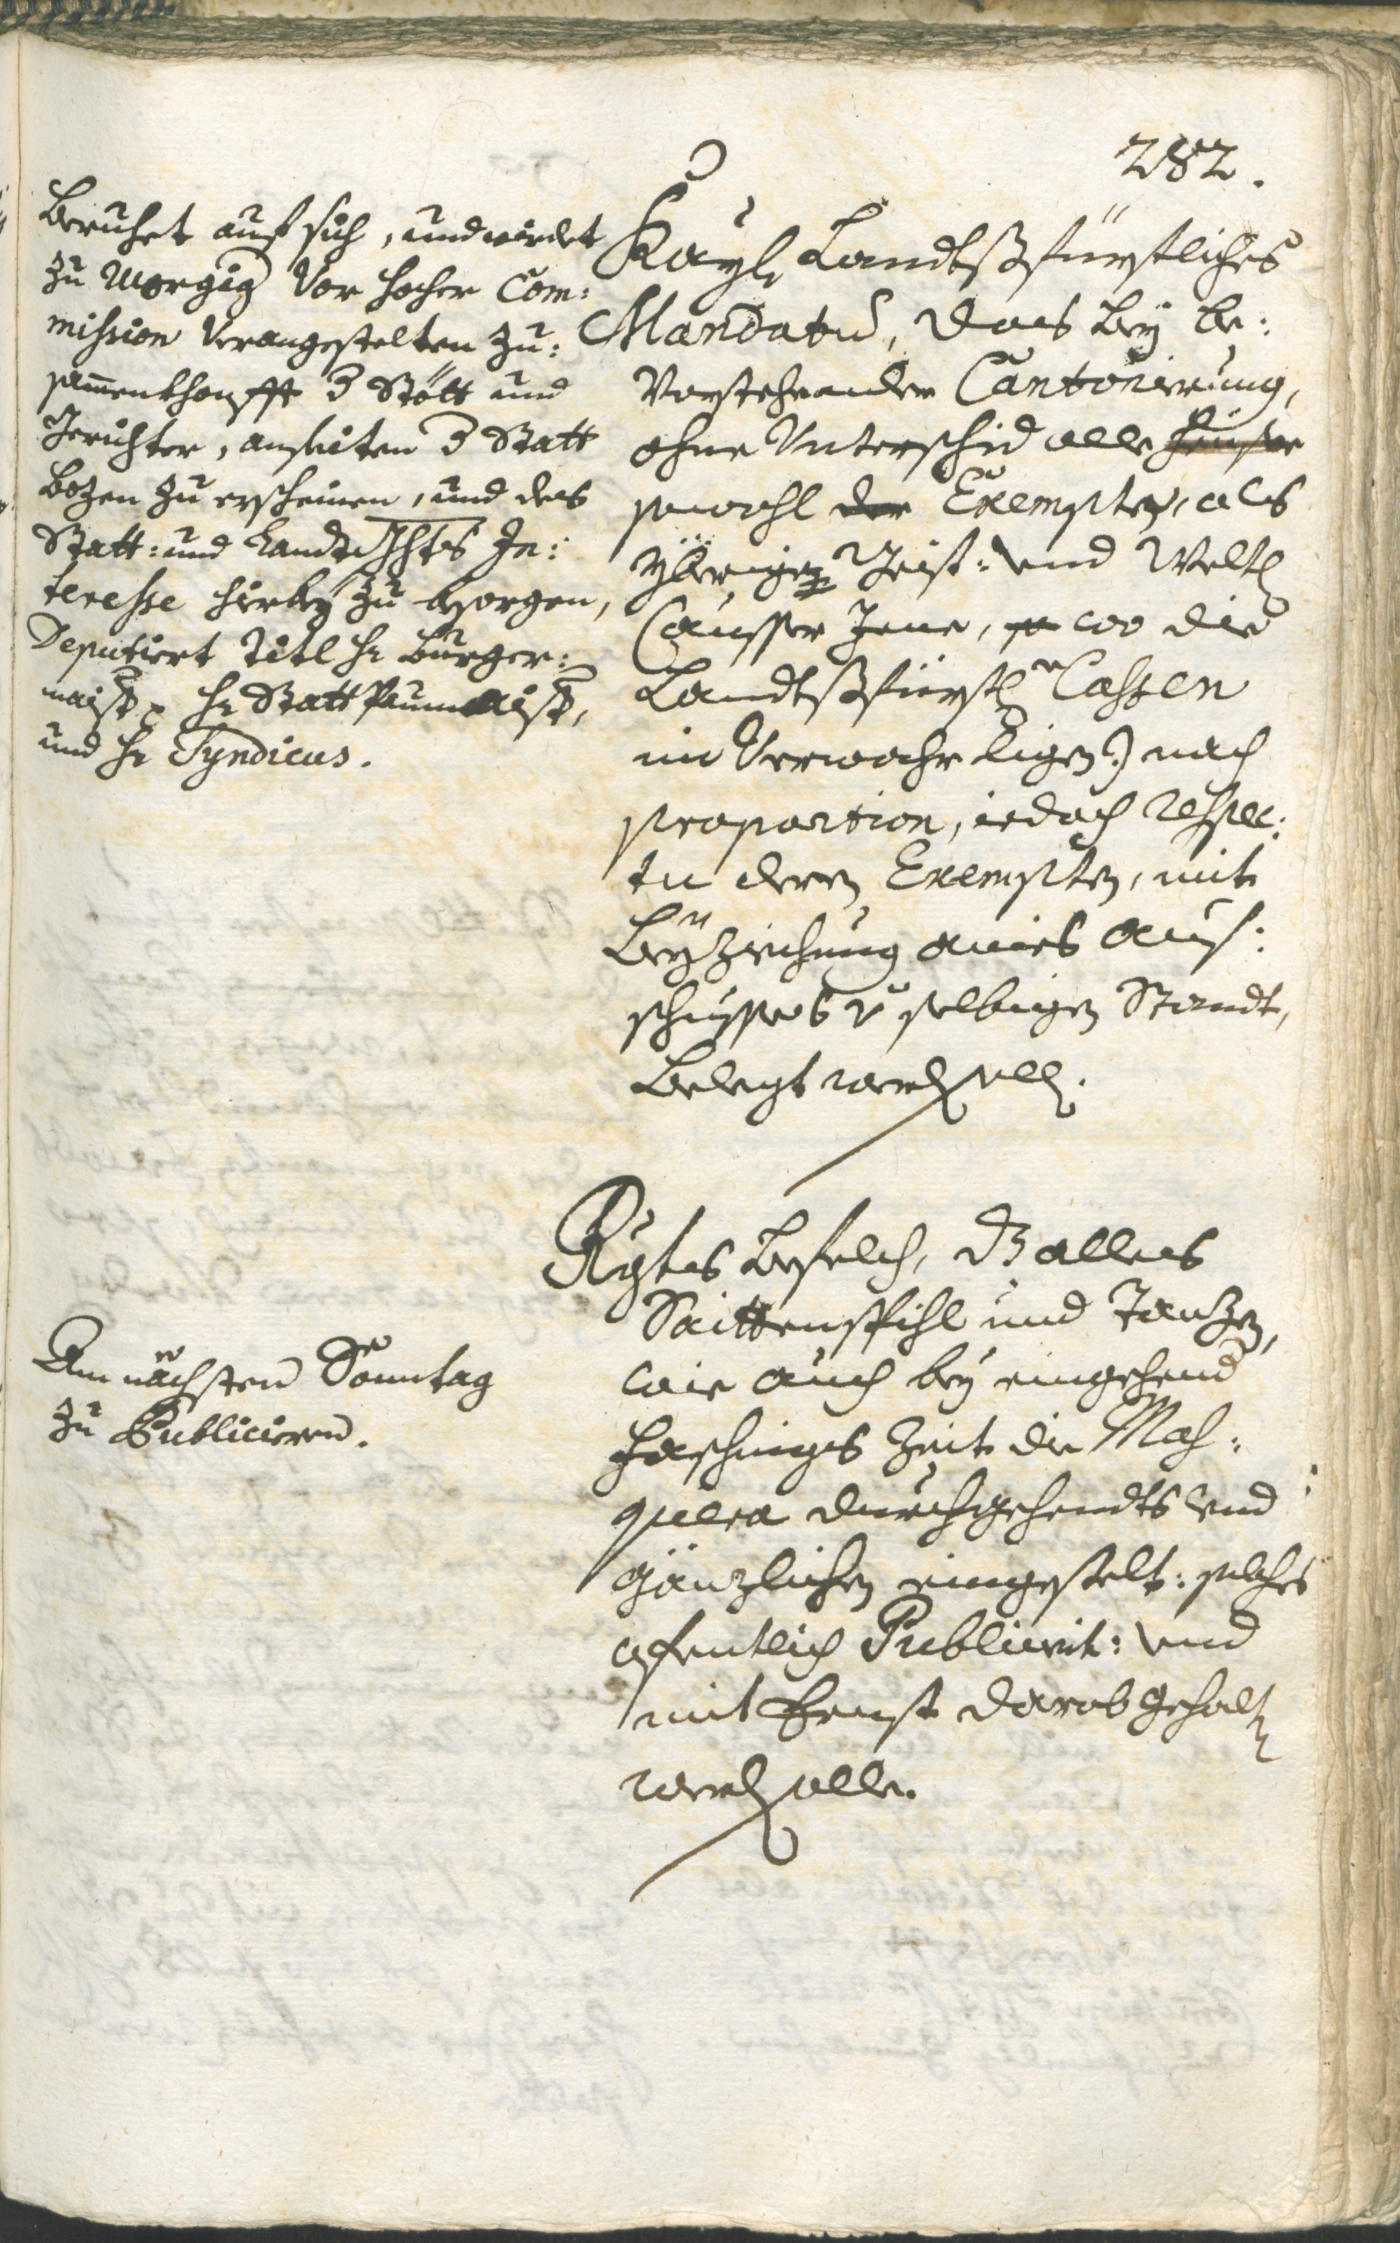 282.
Beruhet auf sich, und wirdet
zu Morgig vor hocher Com:
mission Verangestelten zu:
samenkhonfft 3 Stött und
Gerichter, anseiten 3 Statt
Bozen zu erscheinen, und des
Statt: und Landtgchts In:
teresse hirbey zu besorgen,
Deputiert Titl Hr Burger:
maistr Hr Statt Paumaistr,
und Hr Syndicus.
Kayl. Landtßfürstliches
Mandatu, das bey be:
Vorstehender Cantonierung,
ohne Unterschid alle Heuser
sowohl der Exempten, als
ybrigen Geist: und Weltl
(ausser Jene, wo die
Landtßfürstl Cassen
in Verwahr ligen) nach
proportion, iedoch respec:
tu deren Exempten, mit
Beyziehung aines aus:
schusses v selbigen Standt,
Belegt werd soll.
Rgtes Befelch, dz alles
Saittenspihl und Tanzen,
wie auch bey eingehend
Faschings Zeit die Mas:
quera durchgehendts und
gänzlichen eingestelt: solches
offentlich Publiciert: und
mit Ernst darob gehalten
werd solle.
Am nächsten Sonntag
zu Publicieren.